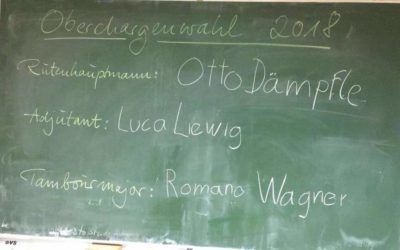 Oberchargenwahl 2018
Rutenhauptmann: Otto Dämpfle
Adjutant: Luca Liewig
Tambourmajor: Romano Wagner